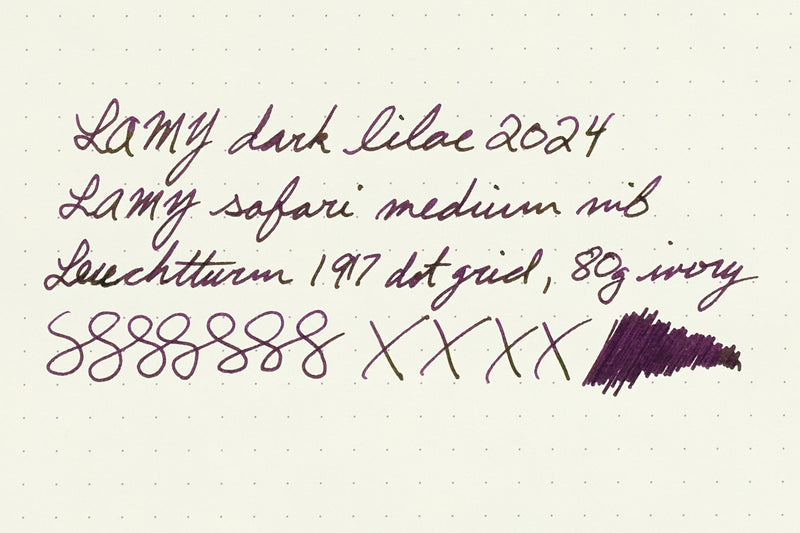 LAMY dark lilac 2024
LAMY safari medium nib
Leuchtturm 1917 dot grid, 80g ivory
XXXX